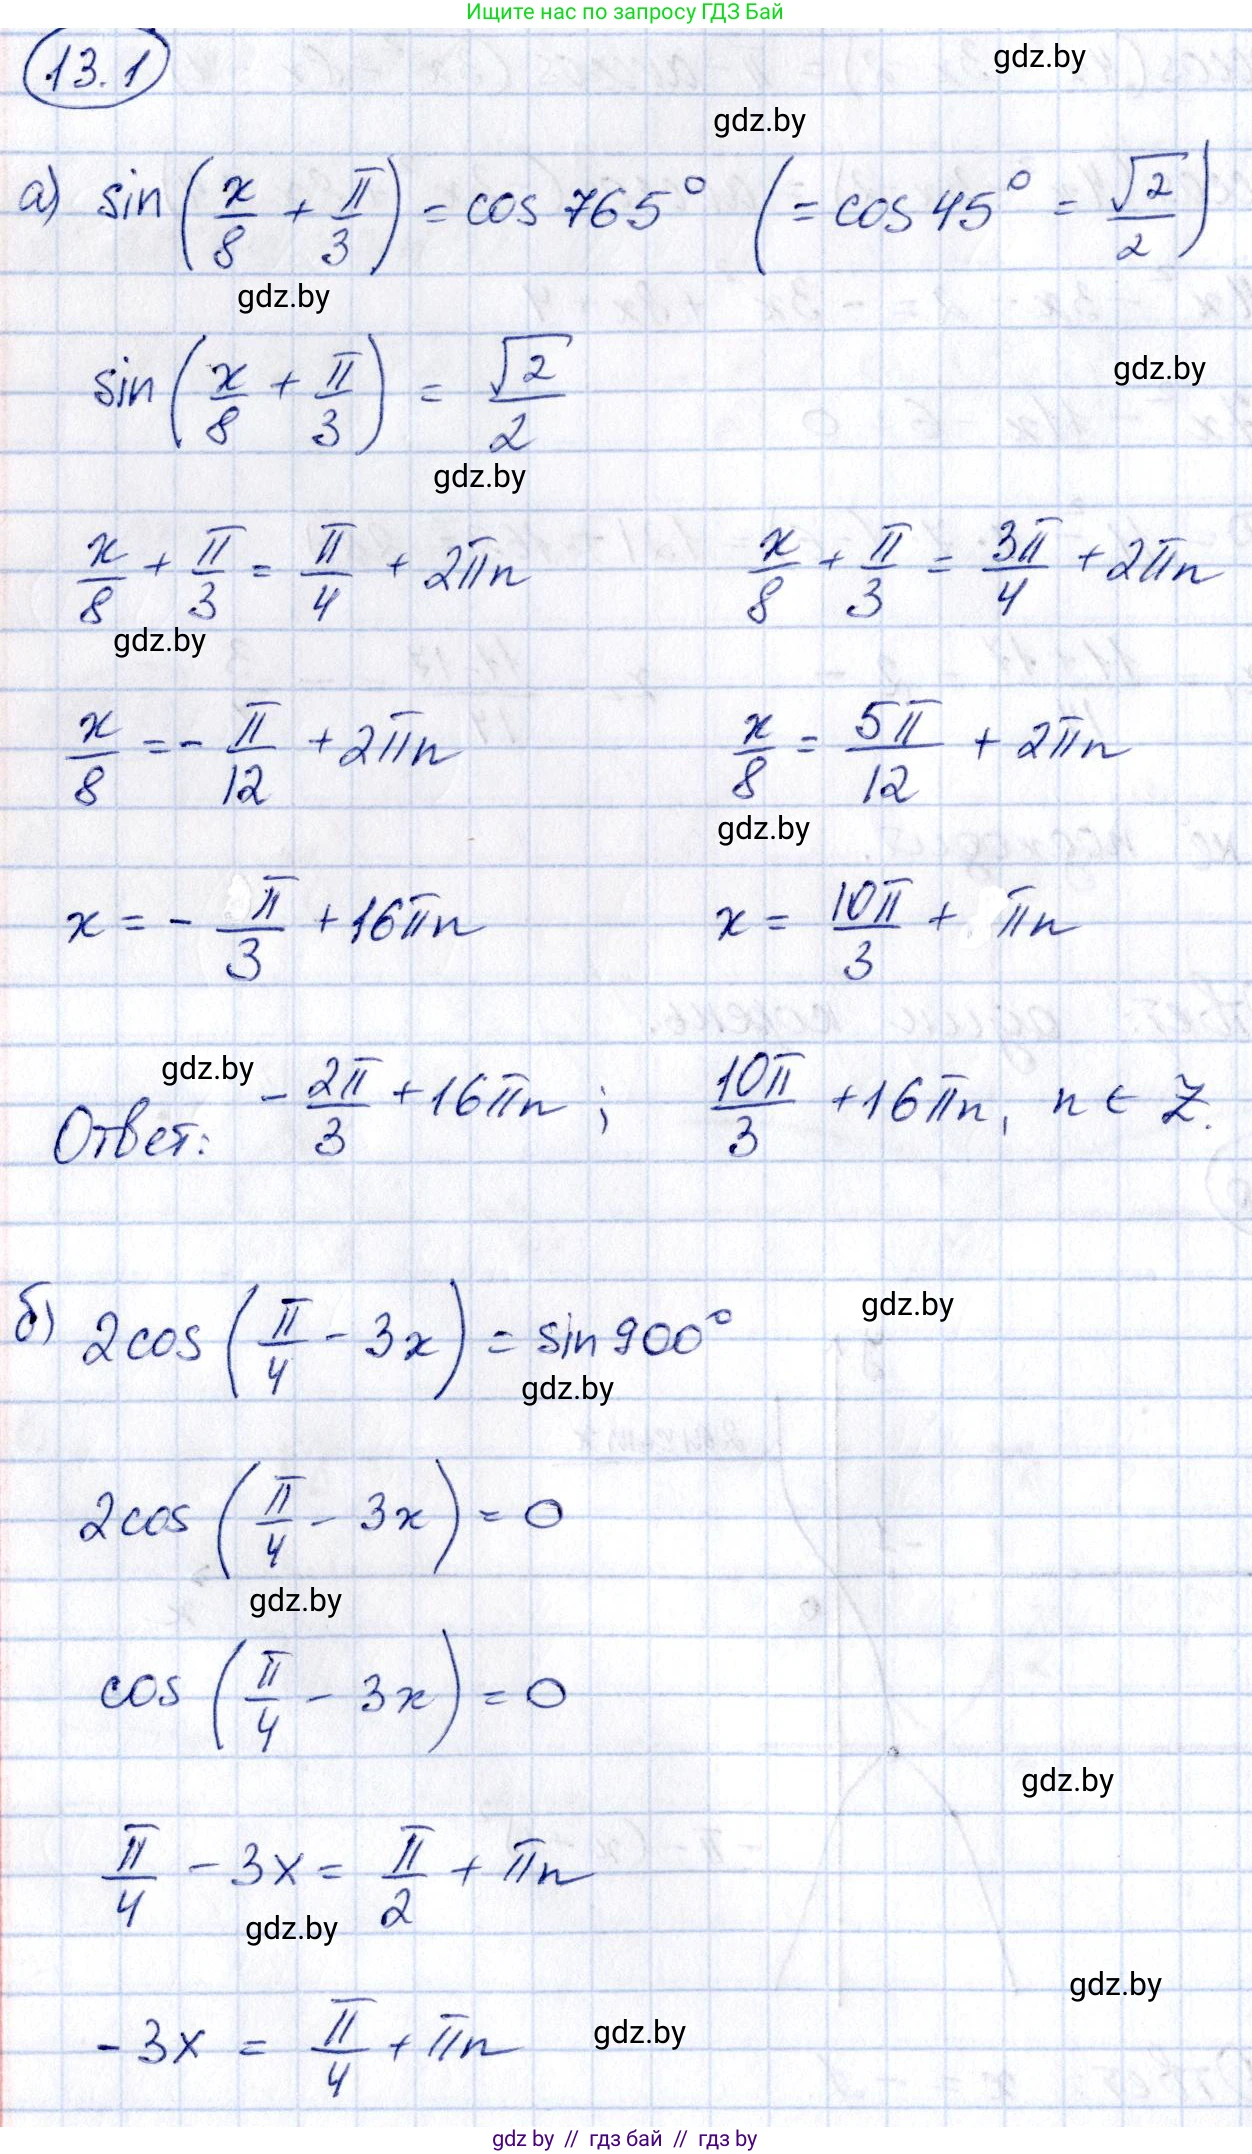 Ищите нас по запросу ГДЗ Бай
13.1
gdz.by
gdz.by
а) sin(x/8 + π/3) = cos 765° (= cos 45° = √2/2)
gdz.by
sin(x/8 + π/3) = √2/2
gdz.by
gdz.by
x/8 + π/3 = π/4 + 2πn    x/8 + π/3 = 3π/4 + 2πn
gdz.by
x/8 = - π/12 + 2πn    x/8 = 5π/12 + 2πn
gdz.by
x = - π/3 + 16πn    x = 10π/3 + πn
gdz.by
Ответ: - 2π/3 + 16πn; 10π/3 + 16πn, n ∈ Z.
б) 2cos(π/4 - 3x) = sin 900°
gdz.by
gdz.by
2cos(π/4 - 3x) = 0
gdz.by
cos(π/4 - 3x) = 0
gdz.by
π/4 - 3x = π/2 + πn
gdz.by
gdz.by
- 3x = π/4 + πn
gdz.by
gdz by // гдз бай // гдз by